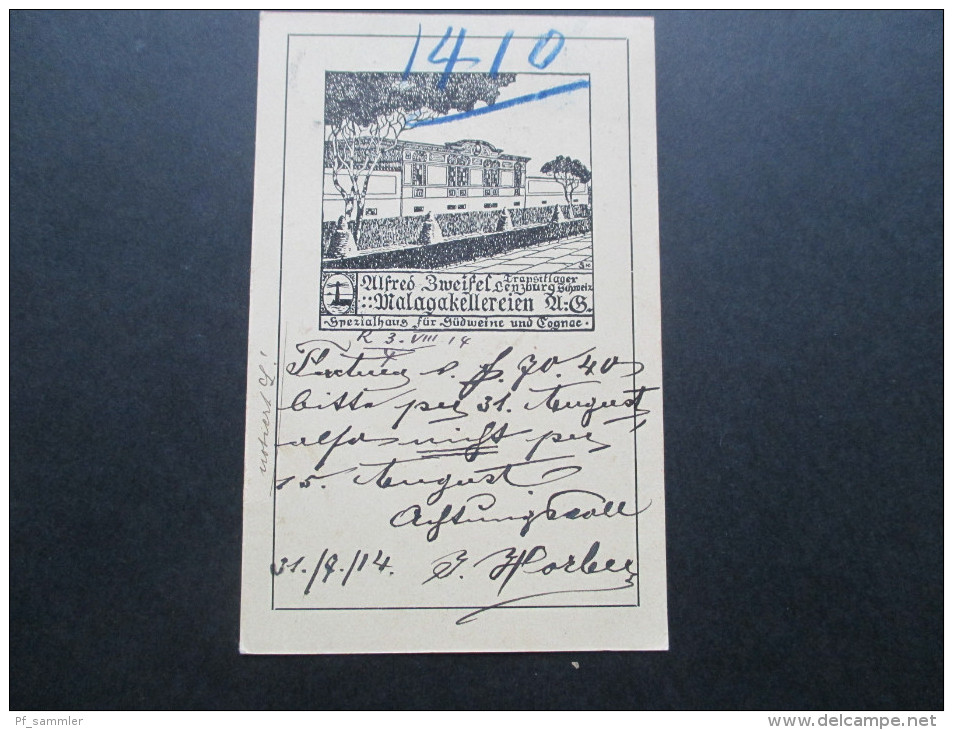 1410
Alfred Zweifel Transitlager
Lenzburg Schweiz
::Malagakellereien A:G.
·Spezialhaus für Südweine und Cognac·
R 3. VIII 14
notiert
Factura v. fr. 70. 40
bitte per 31. August
also nicht per
15. August
Achtungsvoll
31./7./14. J. Horber
Pf_sammler
www.delcampe.net